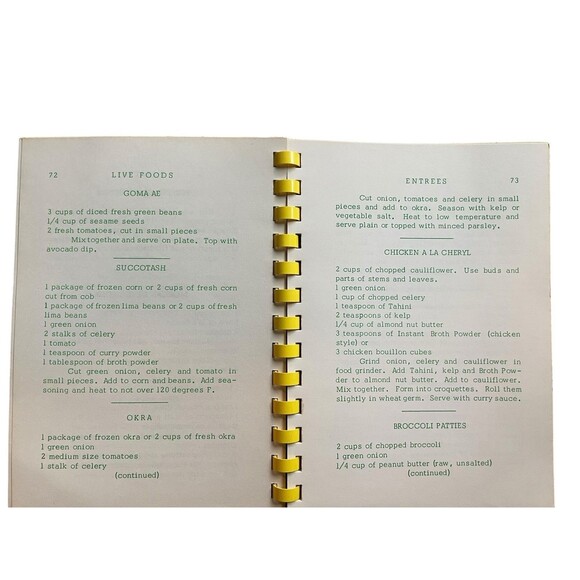 72 LIVE FOODS
GOMA AE
3 cups of diced fresh green beans
1/4 cup of sesame seeds
2 fresh tomatoes, cut in small pieces
Mix together and serve on plate. Top with
avocado dip.
SUCCOTASH
1 package of frozen corn or 2 cups of fresh corn
cut from cob
1 package of frozen lima beans or 2 cups of fresh
lima beans
1 green onion
2 stalks of celery
1 tomato
1 teaspoon of curry powder
1 tablespoon of broth powder
Cut green onion, celery and tomato in
small pieces. Add to corn and beans. Add sea-
soning and heat to not over 120 degrees F.
OKRA
1 package of frozen okra or 2 cups of fresh okra
1 green onion
2 medium size tomatoes
1 stalk of celery
(continued)
ENTREES 73
Cut onion, tomatoes and celery in small
pieces and add to okra. Season with kelp or
vegetable salt. Heat to low temperature and
serve plain or topped with minced parsley.
CHICKEN A LA CHERYL
2 cups of chopped cauliflower. Use buds and
parts of stems and leaves.
1 green onion
1 cup of chopped celery
1 teaspoon of Tahini
2 teaspoons of kelp
1/4 cup of almond nut butter
3 teaspoons of Instant Broth Powder (chicken
style) or
3 chicken bouillon cubes
Grind onion, celery and cauliflower in
food grinder. Add Tahini, kelp and Broth Pow-
der to almond nut butter. Add to cauliflower.
Mix together. Form into croquettes. Roll them
slightly in wheat germ. Serve with curry sauce.
BROCCOLI PATTIES
2 cups of chopped broccoli
1 green onion
1/4 cup of peanut butter (raw, unsalted)
(continued)